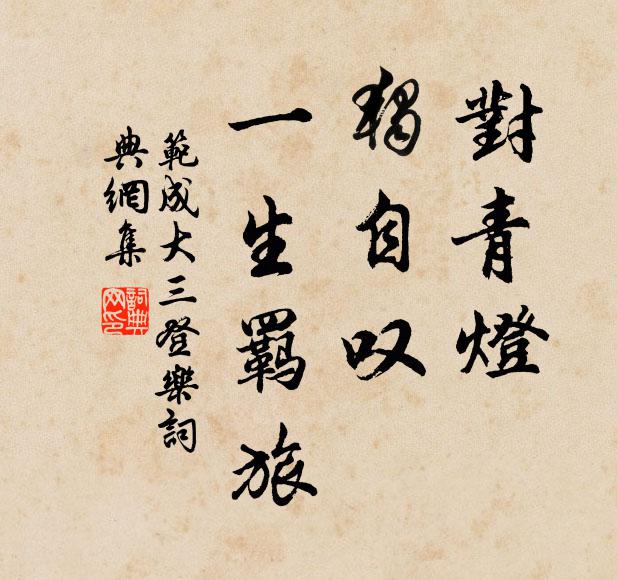 對青燈
獨自叹
一生羈旅
範成大三登樂詞
典網集
詞典
网印